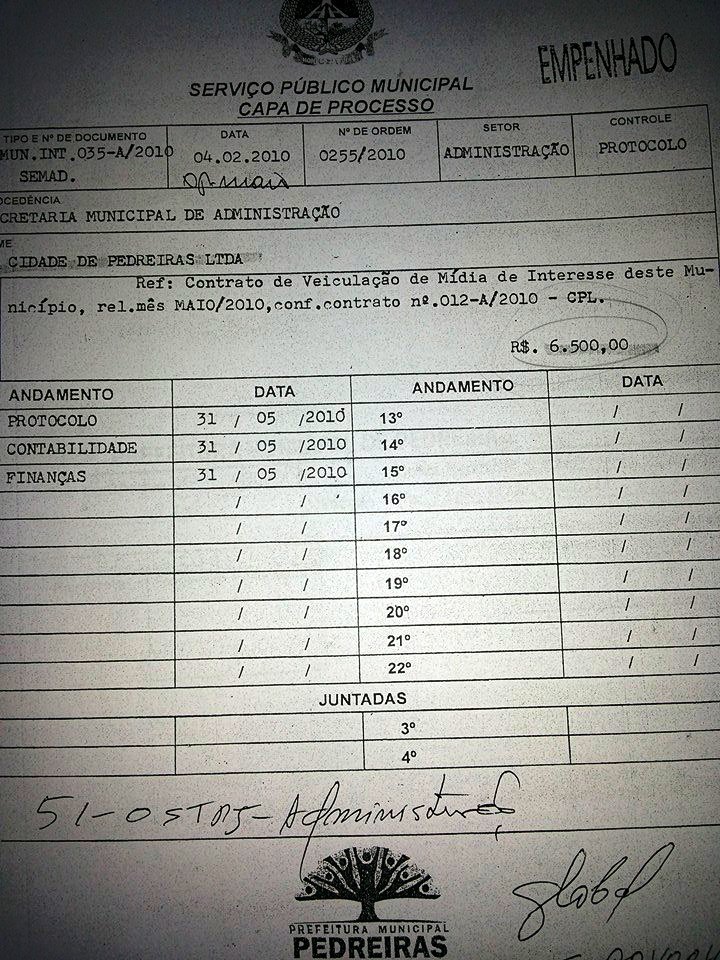 EMPENHADO
SERVIÇO PÚBLICO MUNICIPAL
CAPA DE PROCESSO
TIPO E Nº DE DOCUMENTO DATA Nº DE ORDEM SETOR CONTROLE
MUN.INT.035-A/2010 04.02.2010 0255/2010 ADMINISTRAÇÃO PROTOCOLO
SEMAD.
OCEDÊNCIA
CRETARIA MUNICIPAL DE ADMINISTRAÇÃO
ME
CIDADE DE PEDREIRAS LTDA
Ref: Contrato de Veiculação de Mídia de Interesse deste Mu-
nicípio, rel.mês MAIO/2010,conf.contrato nº.012-A/2010 - CPL.
R$. 6.500,00
ANDAMENTO DATA ANDAMENTO DATA
PROTOCOLO 31 / 05 /2010 13º / /
CONTABILIDADE 31 / 05 /2010 14º / /
FINANÇAS 31 / 05 /2010 15º / /
/ / 16º / /
/ / 17º / /
/ / 18º / /
/ / 19º / /
/ / 20º / /
/ / 21º / /
/ / 22º / /
JUNTADAS
3º
4º
PREFEITURA MUNICIPAL
PEDREIRAS